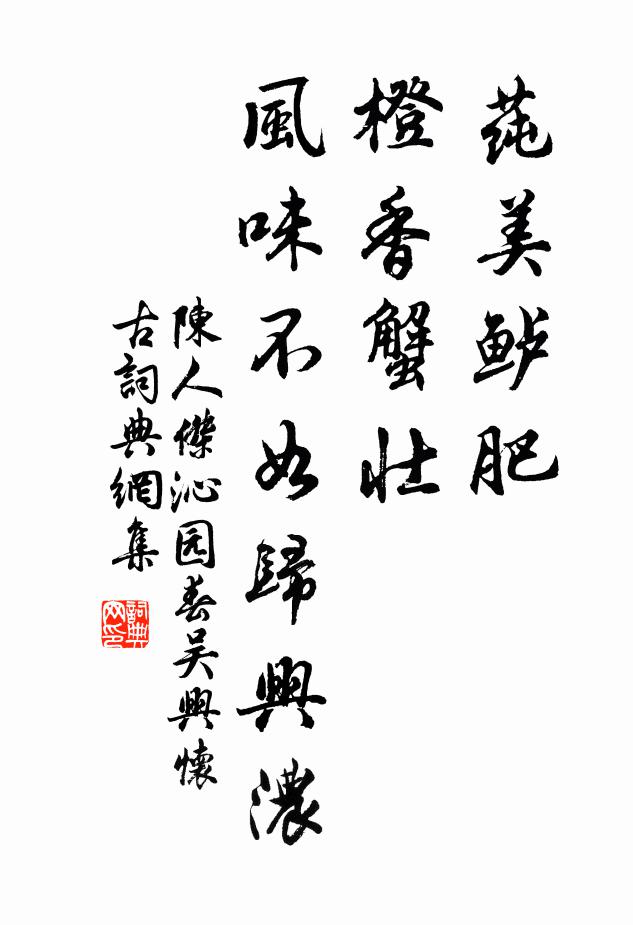 莼美鲈肥
橙香蟹壮
風味不如歸興濃
陳人傑沁园春吴興懷
古詞典網集
詞典
网印